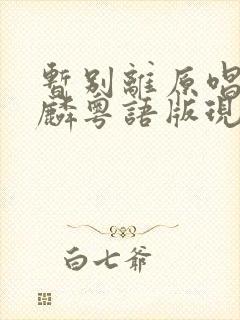 暫別離原唱
麟粵語版現
白七爺